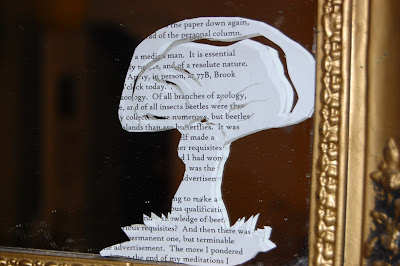 the paper down again,
ad of the personal column.
a medical man. It is essential
y nerves, and of a resolute nature.
Apply, in person, at 77B, Brook
clock today.
zoology. Of all branches of zoology,
e, and of all insects beetles were the
collect
more numerous, but beetles
lands than are butterflies. It was
elf made a
her requisites
and I had won
was the
advertisem
ng to make a
ous qualificatio
nowledge of beetl
ious requisites? And then there was
permanent one, but terminable
advertisement. The more I pondered
at the end of my meditations I